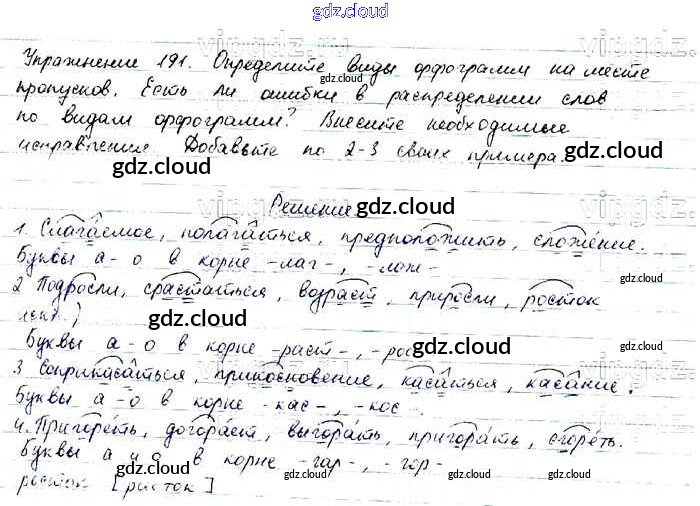 gdz.cloud
Упражнение 191. Определите виды орфограмм на месте
пропусков. Есть ли ошибки в распределении слов
по видам орфограмм? Внесите необходимые
исправления. Добавьте по 2-3 своих примера.
Решение
1. Слагаемое, полагаться, предположить, сложение.
Буквы а-о в корне -лаг-, -лож-
2 Подросли, срастаться, возраст, приросли, росток
Буквы а-о в корне -раст-,
3 Соприкасаться, прикосновение, касаться, касание.
Буквы а-о в корне -кас-, -кос-.
4. Пригореть, догорает, выгорать, пригорать, сгореть.
Буквы а и о в корне -гар-, -гор-
росток [росток]